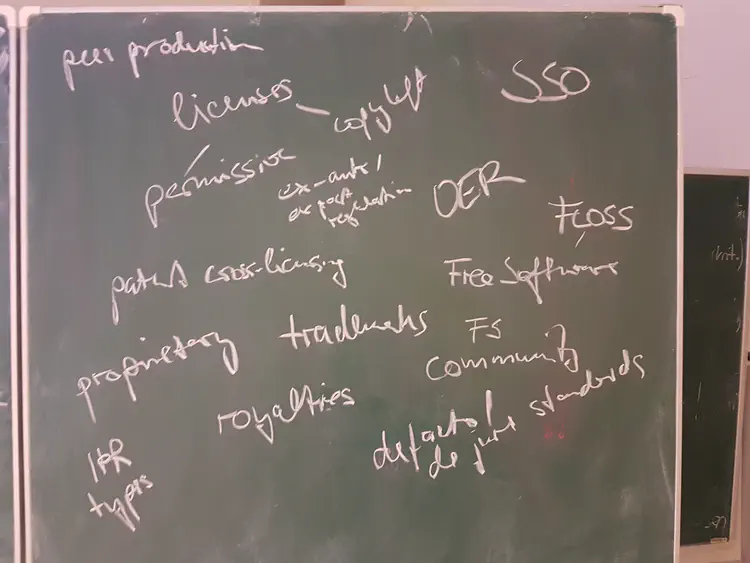 peer production
licenses – copyleft
SSO
permissive
ex-ante/
ex post
regulation
OER
FLOSS
patent cross-licensing
Free Software
proprietary
trademarks
FS
community
royalties
de facto/
de jure standards
IPR
types